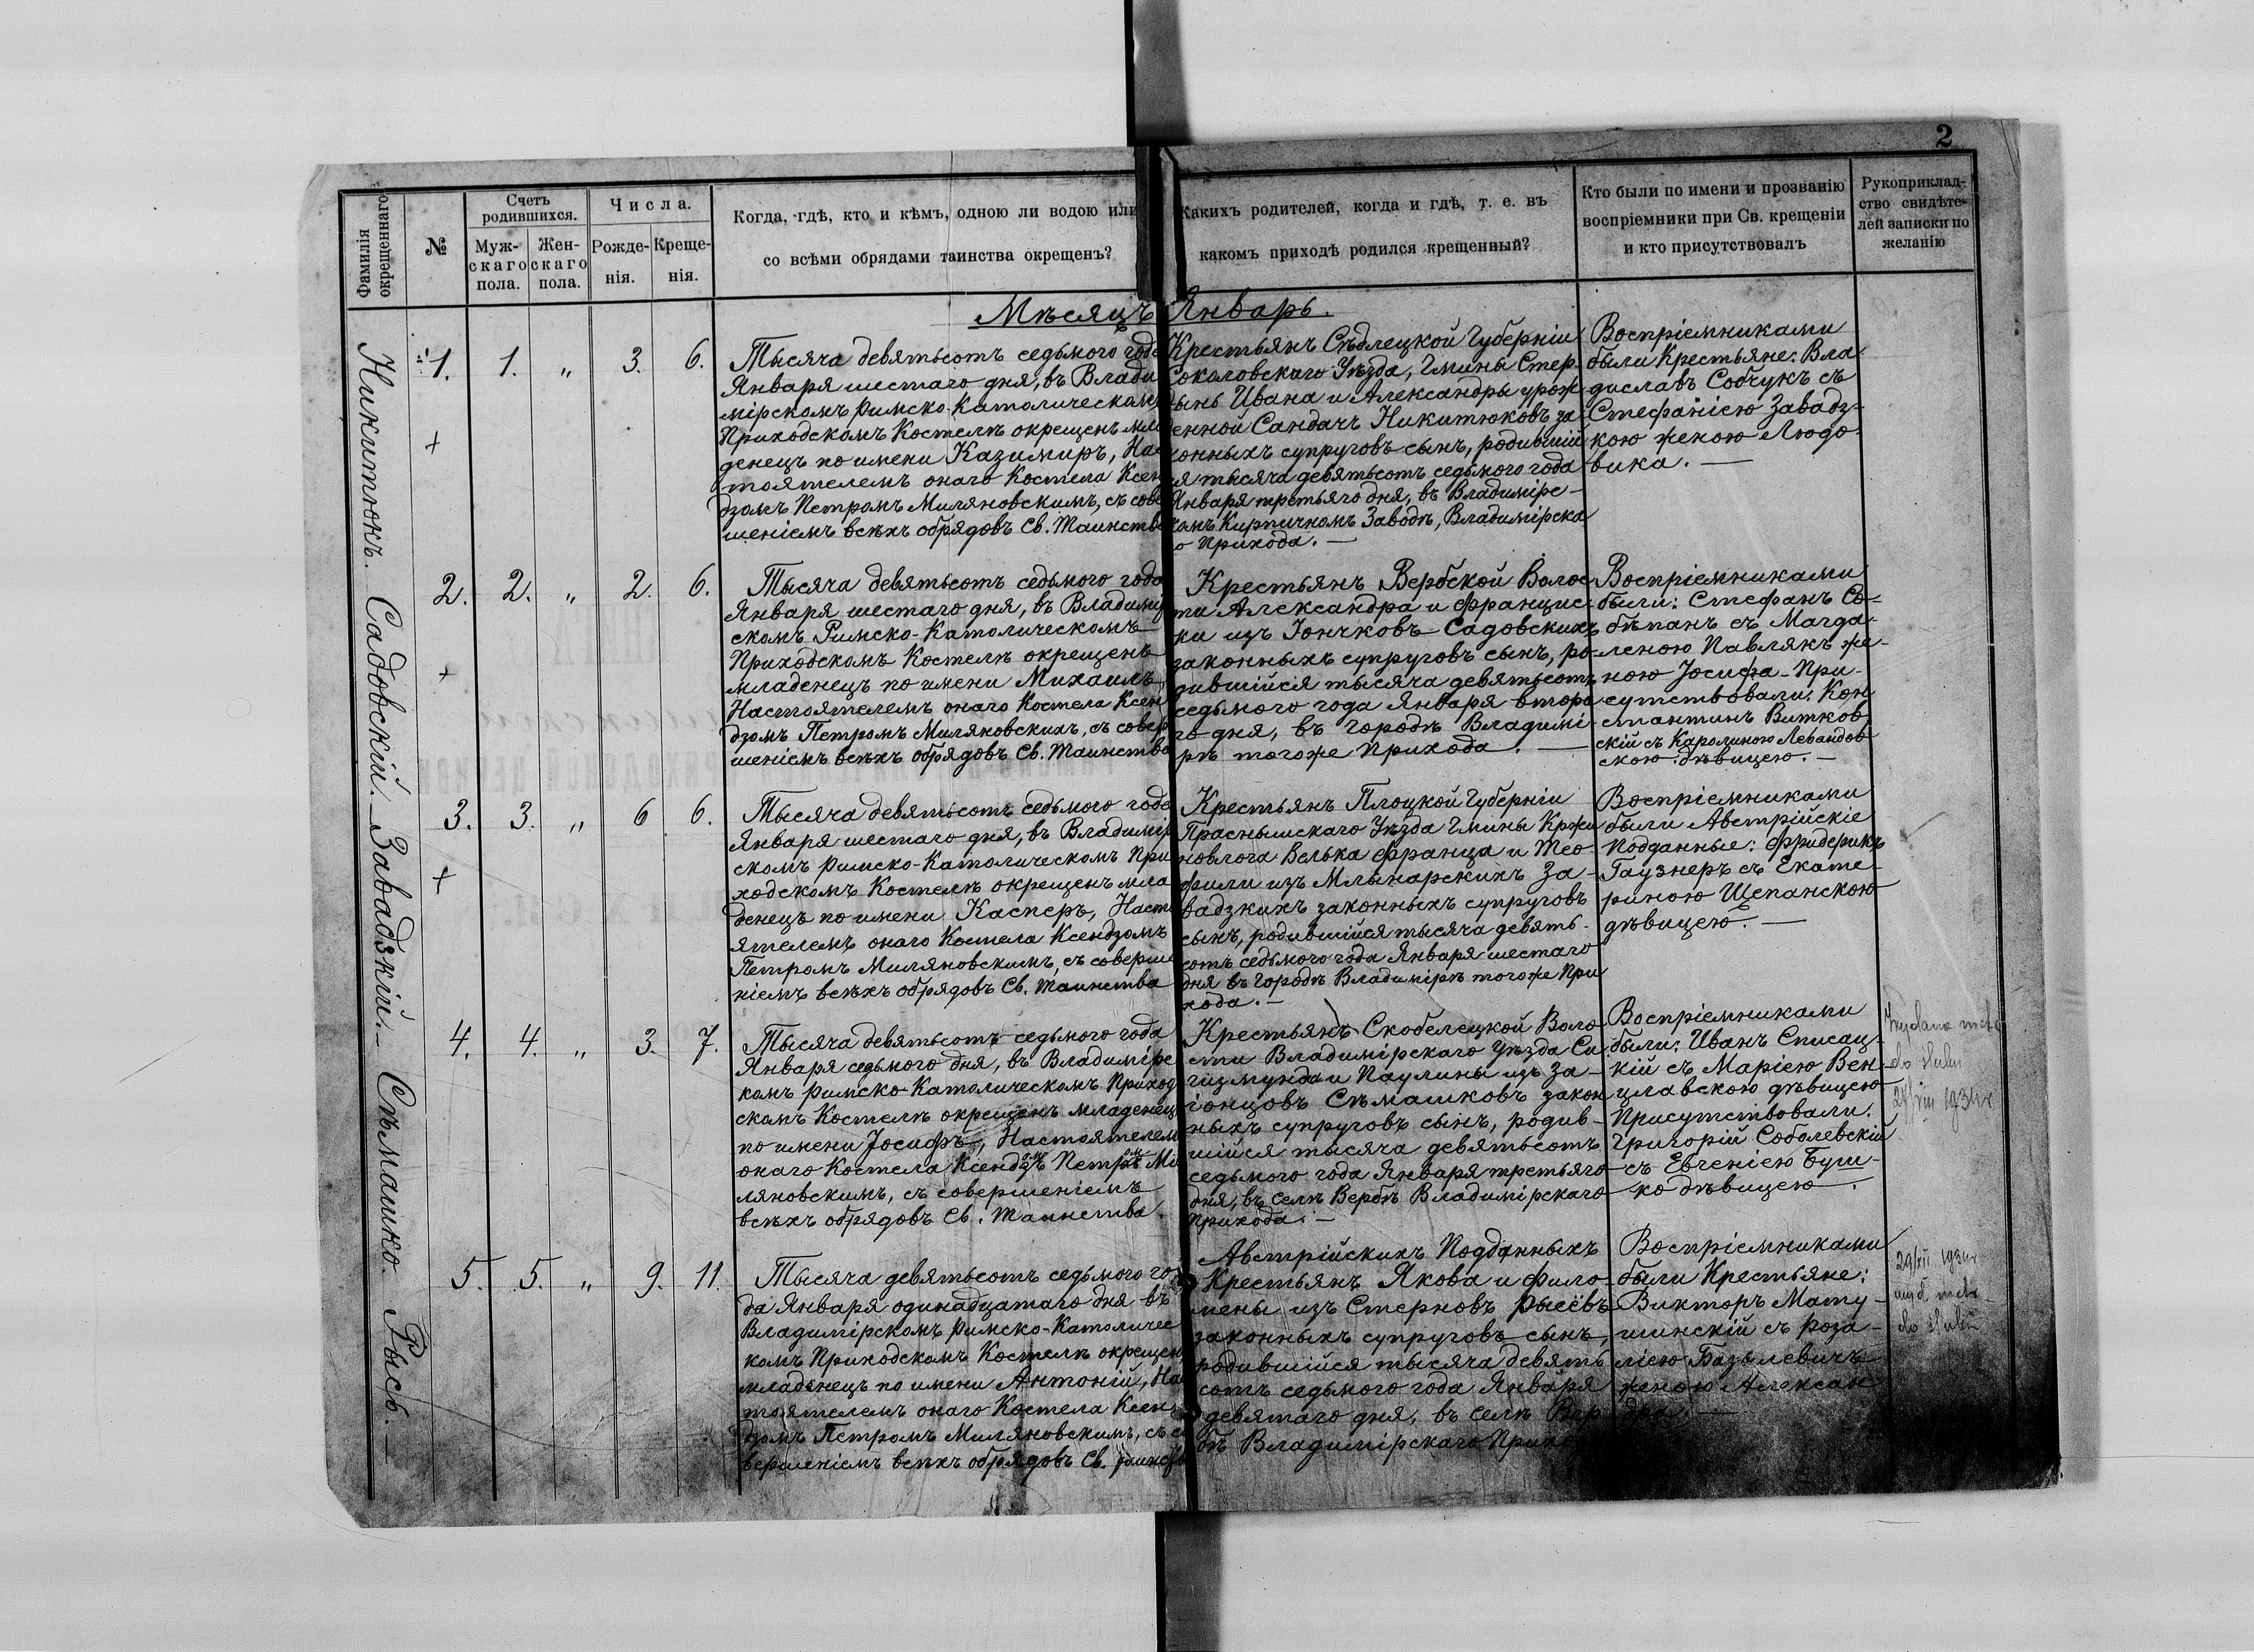 2
Фамилія
окрещеннаго
№
Счетъ
родившихся.
Муж-
скаго
пола.
Жен-
скаго
пола.
Числа.
Рожде-
нія.
Креще-
нія.
Когда, гдѣ, кто и кѣмъ, одною ли водою или
со всѣми обрядами таинства окрещенъ?
Какихъ родителей, когда и гдѣ, т. е. въ
какомъ приходѣ родился крещенный?
Кто были по имени и прозванію
воспріемники при Св. крещеніи
и кто присутствовалъ
Рукоприклад-
ство свидѣте-
лей записки по
желанію
Мѣсяцъ Январь.
Никитюкъ. Садовскій. Завадзкій. Сѣмашко. Рысь.
1. 1. „ 3. 6.
Тысяча девятьсотъ седьмого года
Января шестаго дня, въ Влади
мірскомъ Римско-Католическомъ
Приходскомъ Костелѣ окрещенъ мла
денецъ по имени Казимиръ, Нас
тоятелемъ онаго Костела Ксен
дзомъ Петромъ Миляновскимъ, съ совер
шеніемъ всѣхъ обрядовъ Св. Таинства
Крестьянъ Сѣдлецкой Губерніи
Соколовскаго Уѣзда, Гмины Стер-
дынь Ивана и Александры урож-
енной Сандачъ Никитюковъ за-
конныхъ супруговъ сынъ, родившій
ся тысяча девятьсотъ седьмого года
Января третьяго дня, въ Владимірс-
комъ Кирпичномъ Заводѣ, Владимірска
о Прихода. —
Воспріемниками
были Крестьяне: Вла-
диславъ Собчукъ съ
Стефаніею Завадз-
кою женою Людо-
вика. —
2. 2. „ 2. 6.
Тысяча девятьсотъ седьмого года
Января шестаго дня, въ Владимір
скомъ Римско-Католическомъ
Приходскомъ Костелѣ окрещенъ
младенецъ по имени Михаилъ
Настоятелемъ онаго Костела Ксен
дзомъ Петромъ Миляновскимъ, съ совер
шеніемъ всѣхъ обрядовъ Св. Таинства
Крестьянъ Вербской Волос-
ти Александра и Францис-
ки изъ Іончковъ Садовскихъ
законныхъ супруговъ сынъ, ро-
дившійся тысяча девятьсотъ
седьмого года Января второ
го дня, въ городѣ Владимі-
рѣ тогоже Прихода. —
Воспріемниками
были: Стефанъ Со-
бѣпанъ съ Магда-
леною Павлякъ же-
ною Іосифа - При-
сутствовали: Кон
стантинъ Витков
скій съ Каролиною Левандов
скою дѣвицею. —
3. 3. „ 6 6.
Тысяча девятьсотъ седьмого года
Января шестаго дня, въ Владимір
скомъ Римско-Католическомъ При
ходскомъ Костелѣ окрещенъ мла
денецъ по имени Касперъ, Насто
ятелемъ онаго Костела Ксендзомъ
Петромъ Миляновскимъ, съ соверше
ніемъ всѣхъ обрядовъ Св. Таинства
Крестьянъ Плоцкой Губерніи
Праснышскаго Уѣзда Гмины Кржи
новлога Велька Франца и Тео-
фили изъ Млынарскихъ За-
вадзкихъ законныхъ супруговъ
сынъ, родившійся тысяча девять-
сотъ седьмого года Января шестаго
дня въ городѣ Владимірѣ тогоже При
хода. —
Воспріемниками
были Австрійскіе
Подданные: Фридерикъ
Гаузнеръ съ Екате-
риною Щепанскою
дѣвицею. —
4. 4. „ 3. 7.
Тысяча девятьсотъ седьмого года
Января седьмого дня, въ Владимірс
комъ Римско-Католическомъ Приход
скомъ Костелѣ окрещенъ младенецъ
по имени Іосифъ, Настоятелемъ
онаго Костела Ксендзомъ Петромъ Ми
ляновскимъ, съ совершеніемъ
всѣхъ обрядовъ Св. Таинства.
Крестьянъ Скобелецкой Воло
сти Владимірскаго Уѣзда Си
гизмунда и Паулины изъ За-
іонцовъ Сѣмашковъ закон
ныхъ супруговъ сынъ, родив-
шійся тысяча девятьсотъ
седьмого года Января третьяго
дня, въ селѣ Вербѣ Владимірскаго
Прихода. —
Воспріемниками
были: Иванъ Списац-
кій съ Маріею Вен-
цлавскою дѣвицею
Присутствовали:
Григорій Соболевскій
съ Евгеніею Буш-
ко дѣвицею.
5. 5. „ 9. 11.
Тысяча девятьсотъ седьмого го-
да Января одинадцатаго дня въ
Владимірскомъ Римско-Католичес
комъ Приходскомъ Костелѣ окрещен
младенецъ по имени Антоній, Нас
тоятелемъ онаго Костела Ксен
дзомъ Петромъ Миляновскимъ, съ со
вершеніемъ всѣхъ обрядовъ Св. Таинства
Австрійскихъ Подданныхъ
Крестьянъ Якова и Фило-
мены изъ Стерновъ Рысевъ
законныхъ супруговъ сынъ,
родившійся тысяча девять
сотъ седьмого года Января
девятаго дня, въ селѣ Вер-
бѣ Владимірскаго Прихо
Воспріемниками
были Крестьяне:
Викторъ Мату-
шинскій съ Роза-
ліею Базылевичъ
женою Алексан
дра. —